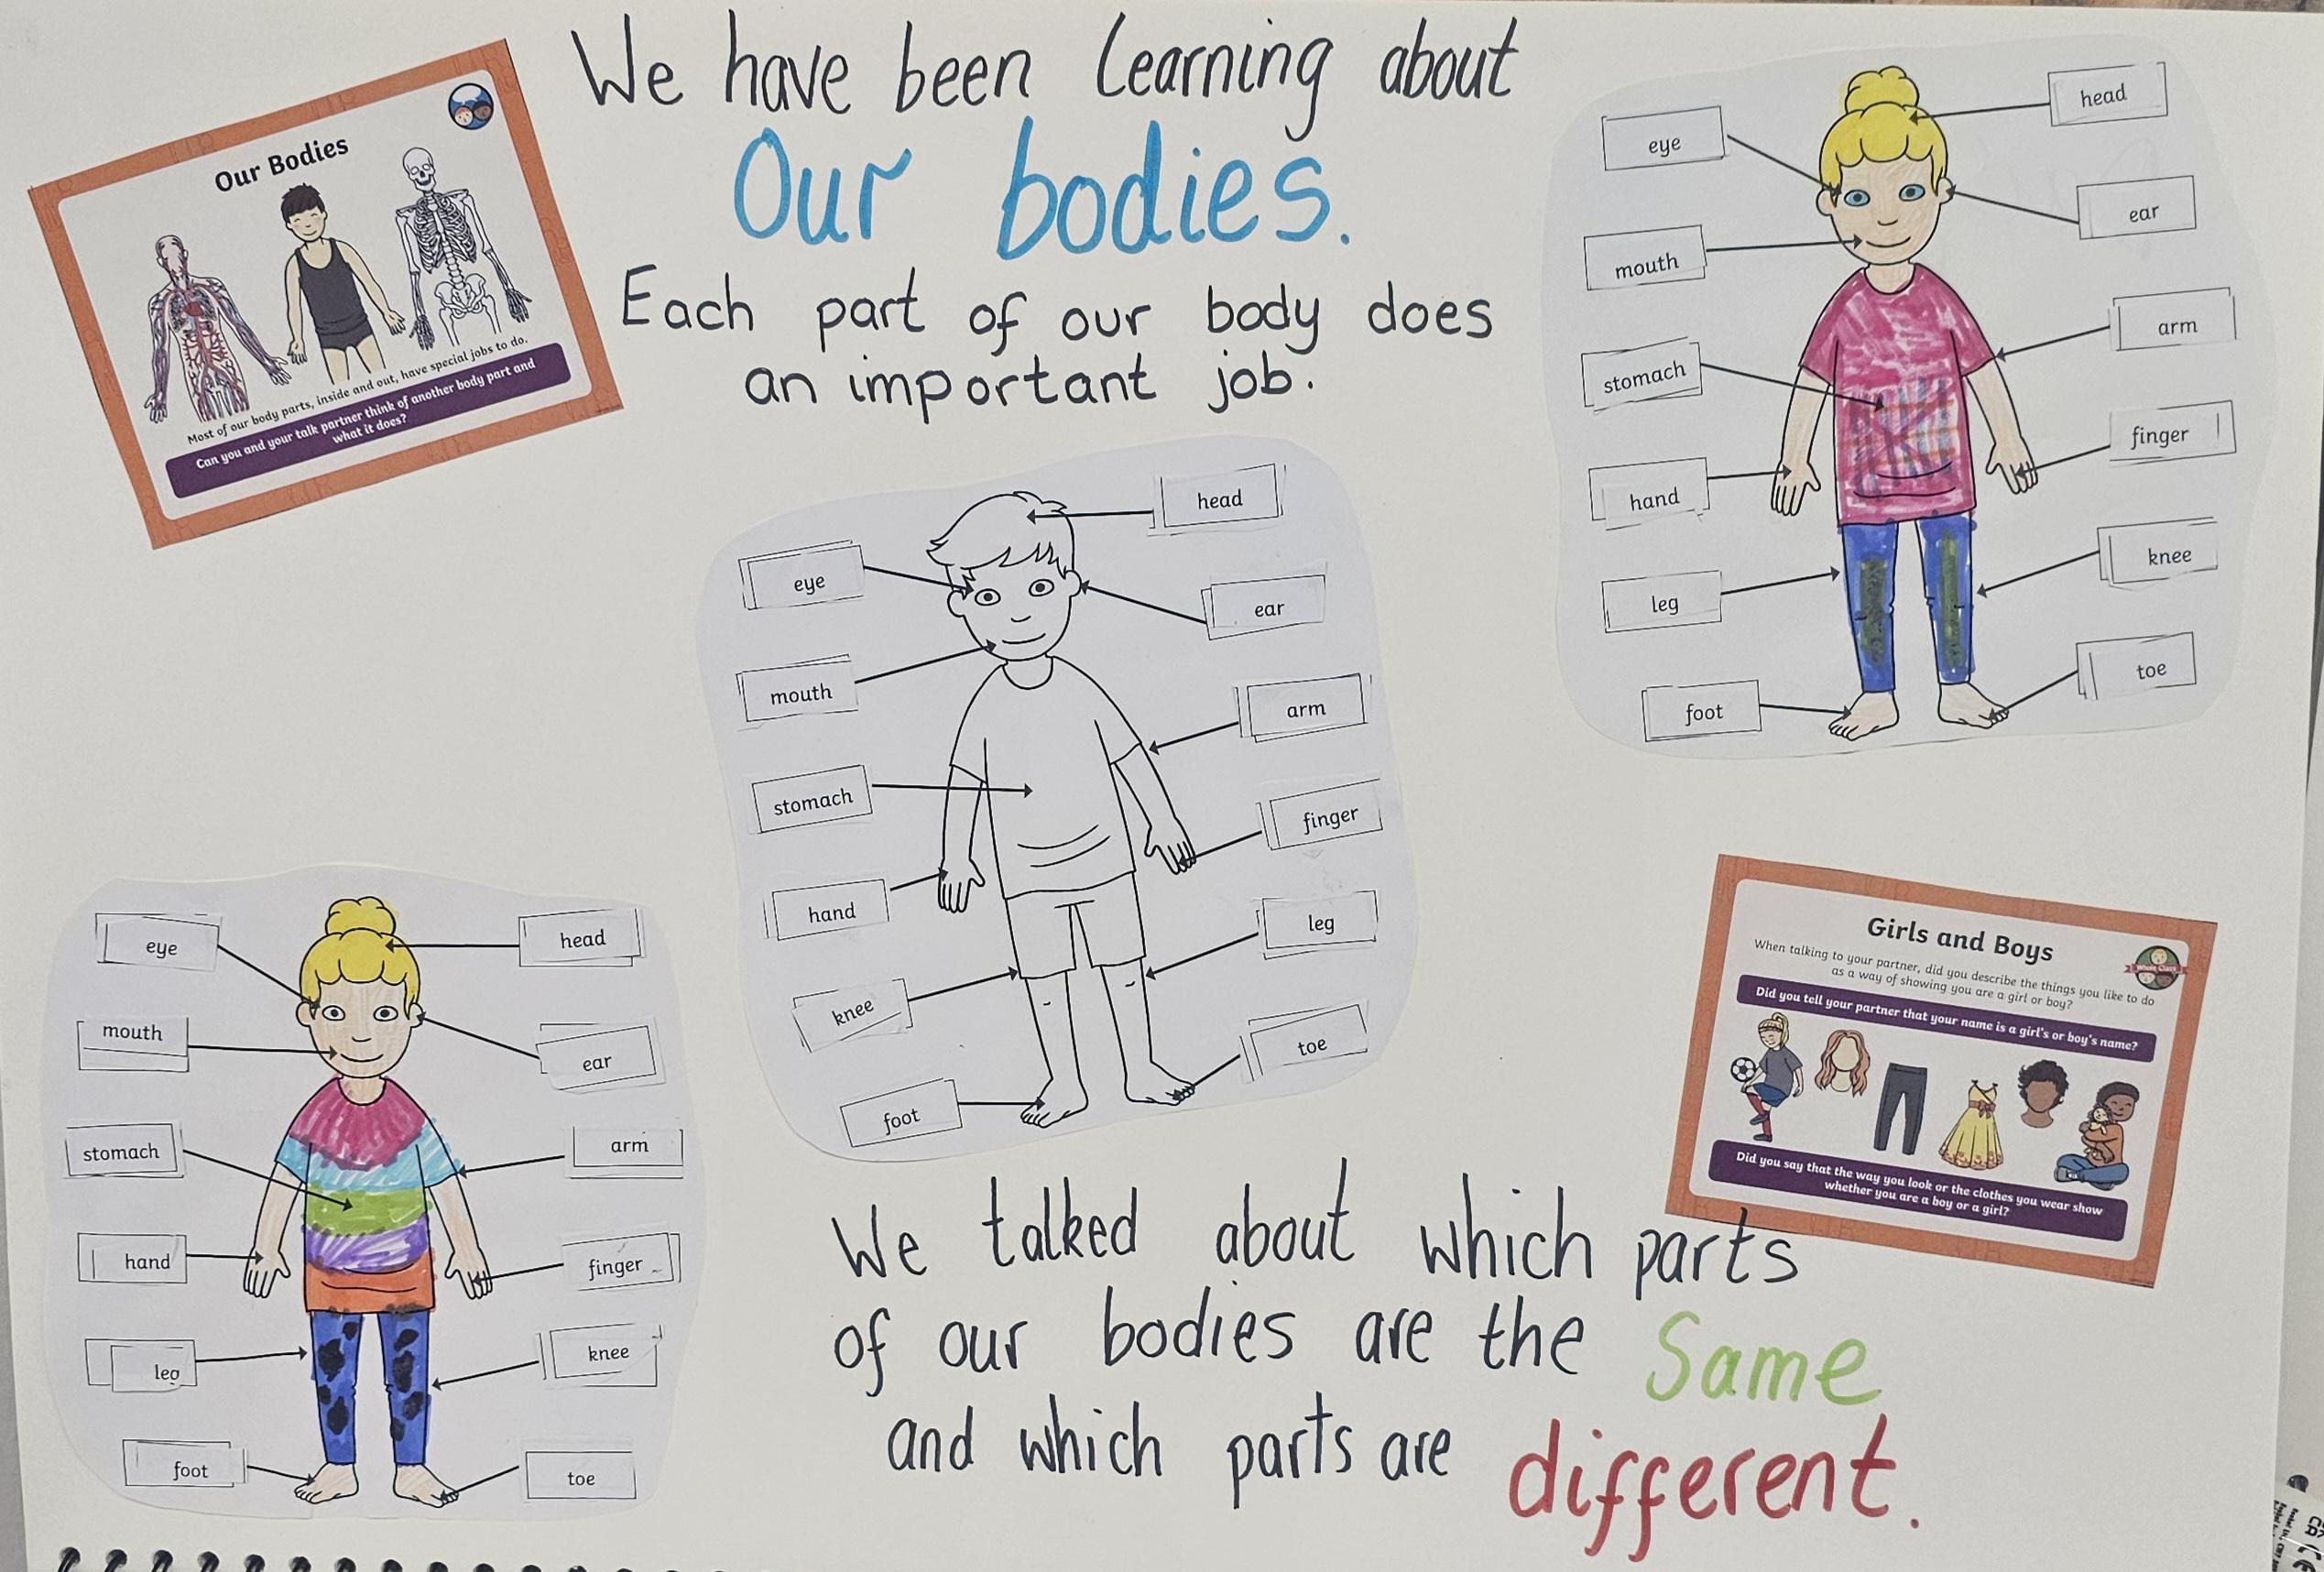 We have been learning about
Our bodies.
Each part of our body does
an important job.
Our Bodies
Most of our body parts, inside and out, have special jobs to do.
Can you and your talk partner think of another body part and
what it does?
eye
head
mouth
ear
stomach
arm
hand
finger
leg
knee
foot
toe
head
eye
ear
mouth
arm
stomach
finger
hand
leg
knee
toe
foot
eye
head
mouth
ear
stomach
arm
hand
finger
leg
knee
foot
toe
Girls and Boys
When talking to your partner, did you describe the things you like to do
as a way of showing you are a girl or boy?
Whole Class
Did you tell your partner that your name is a girl's or boy's name?
Did you say that the way you look or the clothes you wear show
whether you are a boy or a girl?
We talked about which parts
of our bodies are the Same
and which parts are different.